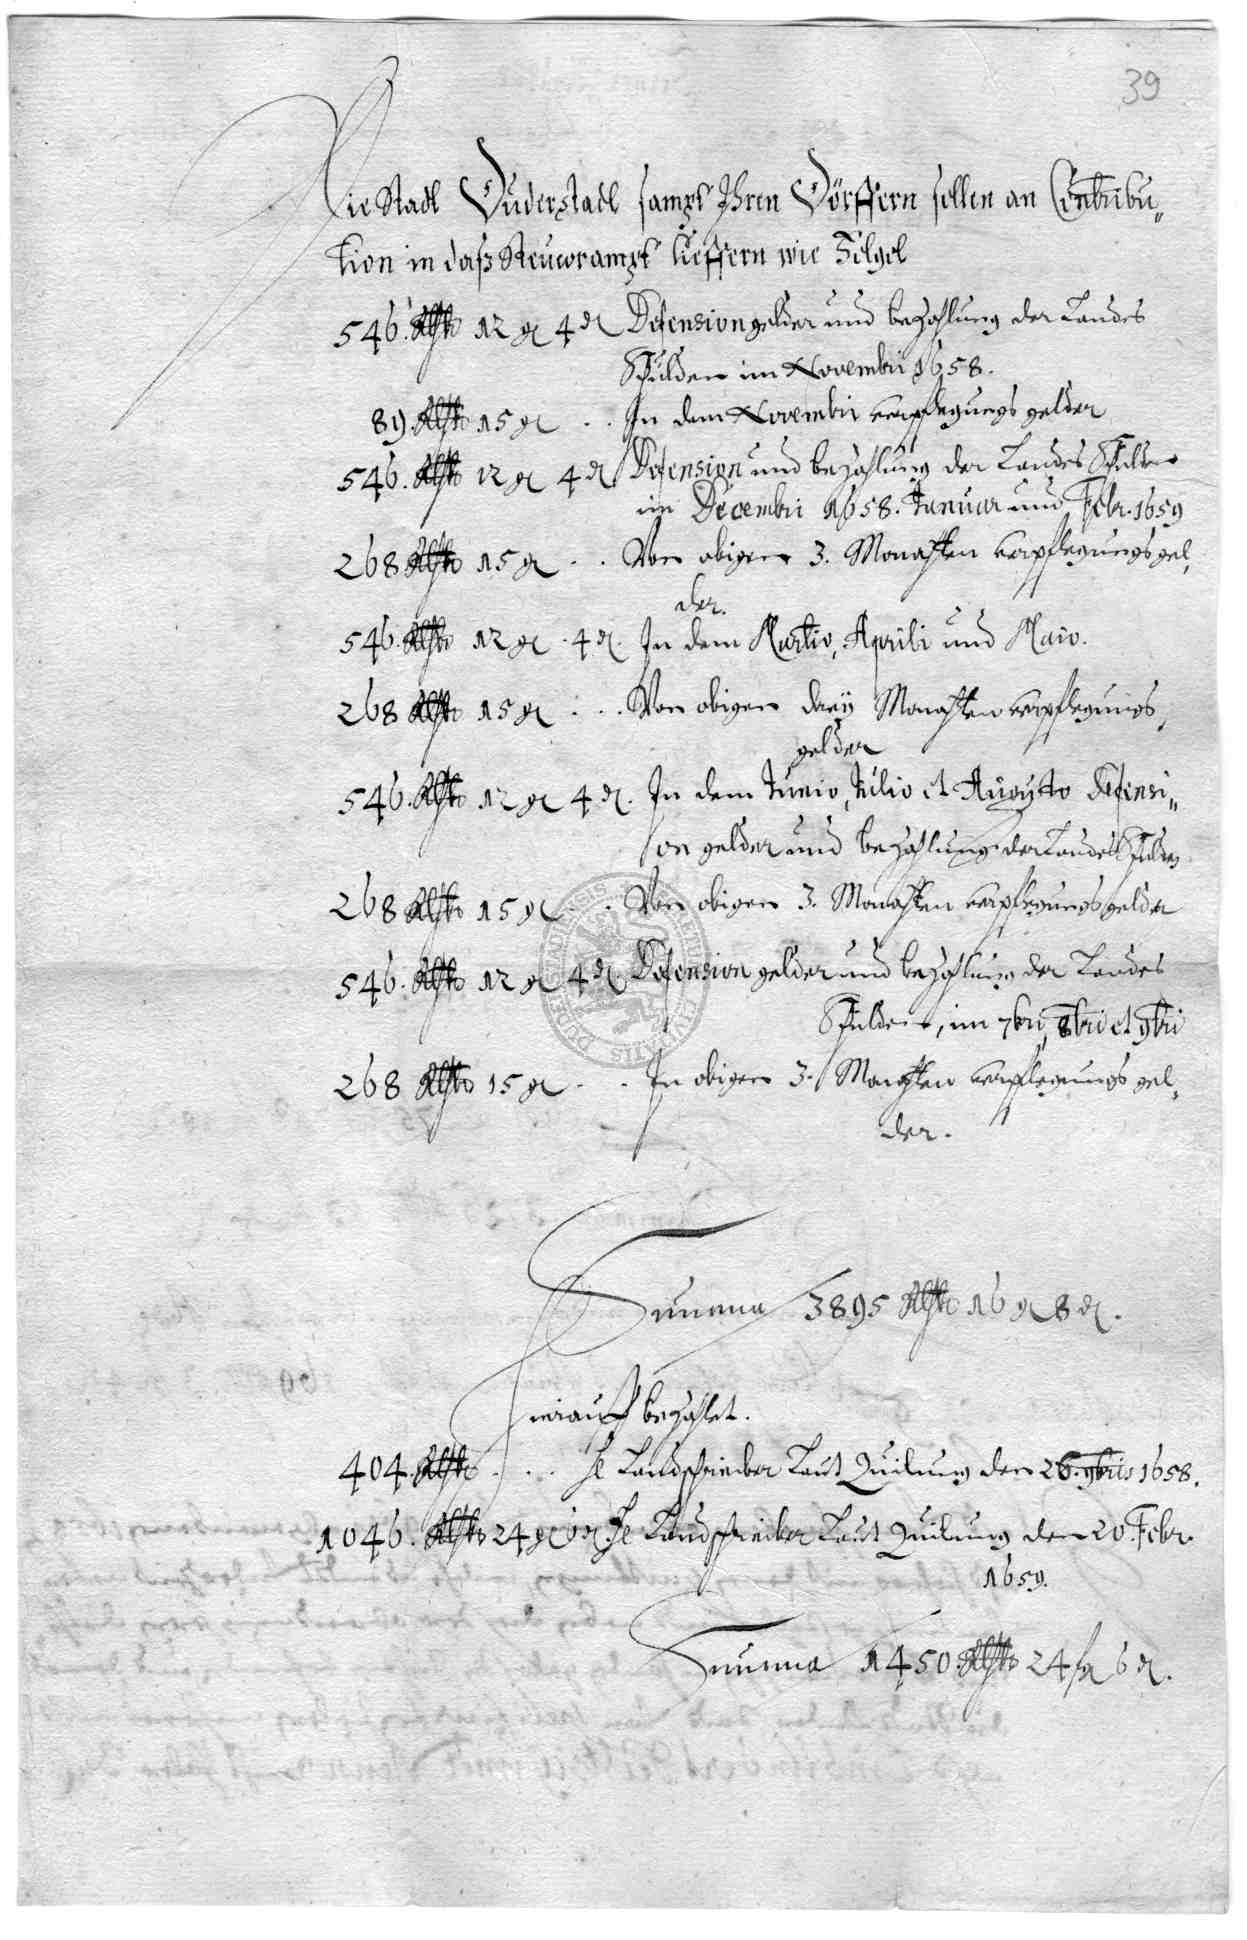 39
Die Stadt Duderstadt sampt Ihren Dörffern sollen an Contribu„
tion in daß Steuwrampt lieffern wie Folget
546. Rthlr 12 gr 4 d Defensiongelder und bezahlung der Landes
Schulden im Novembri 1658.
89. Rthlr 15 gr . . In dem Novembri verpflegungs gelder
546. Rthlr 12 gr 4 d Defension und bezahlung der Landes Schulden
im Decembri 1658. Januar und Febr. 1659
268 Rthlr 15 gr . . Von obigen 3. Monahten verpflegungs gel„
der.
546. Rthlr 12 gr . 4 d. In dem Martio, Aprili und Maio.
268 Rthlr 15 gr . . . Von obigen dreÿ Monahten verpflegungs
gelder
546. Rthlr 12 gr 4 d. In dem Junio, Julio et Augusto Defensi„
on gelder und bezahlung der Landes Schulden
268 Rthlr 15 gr . . Von obigen 3. Monahten verpflegungs gelder
546. Rthlr 12 gr 4 d Defension gelder und bezahlung der Landes
Schulden, im 7bri, 8bri et 9bri
268 Rthlr 15 gr . . In obigen 3. Monahten verpflegungs gel„
der.
Summa 3895 Rthlr 16 gr 8 d.
Hierauff bezahlet.
404. Rthlr . . . H Landschreiber Laut Quitung den 26. 9bris 1658.
1046. Rthlr 24 gr 6 d H Landschreiber Laut Quitung den 20. Febr.
1659.
Summa 1450 Rthlr 24 gr 6 d.